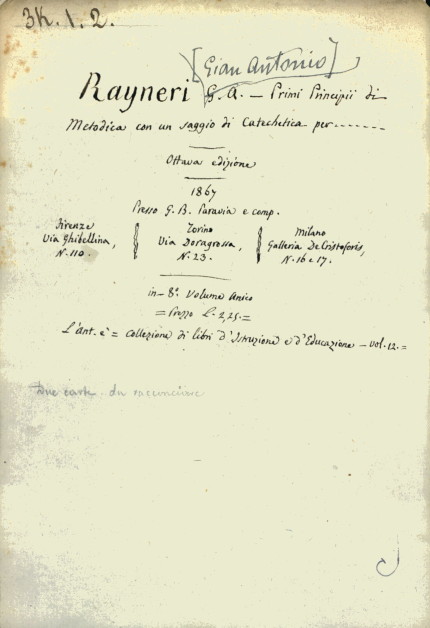 3K.1.2.
[Gian Antonio]
Rayneri G. A. — Primi Principii di
Metodica con un saggio di Catechetica per-------
Ottava edizione
1867
Presso G. B. Paravia e comp.
Firenze
Via Ghibellina,
N. 110.
Torino
Via Doragrossa,
N. 23.
Milano
Galleria De Cristoforis,
N. 16 e 17.
in-8°. Volume Unico
= Prezzo L. 2,25. =
L'Ant. è = Collezione di libri d'Istruzione e d'Educazione — vol. 12. =
Due carte da racconciare